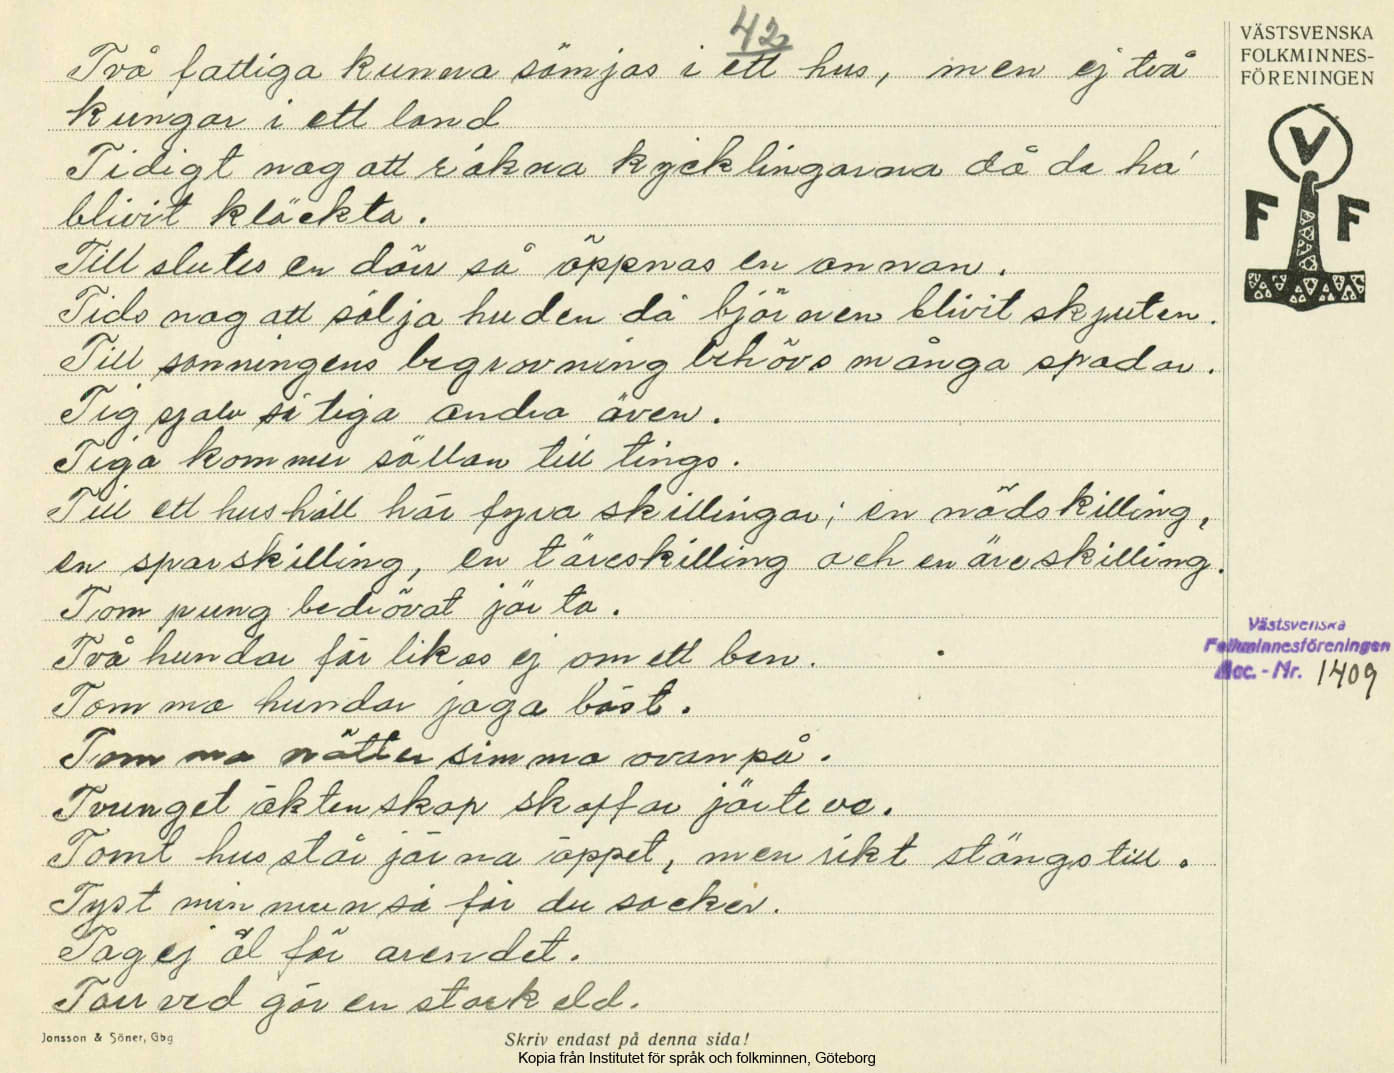 42
VÄSTSVENSKA
FOLKMINNES-
FÖRENINGEN
V
F F
Två fattiga kunna sämjas i ett hus, men ej två
kungar i ett land
Tidigt nog att räkna kycklingarna då de ha
blivit kläckta.
Till slutes en dörr så öppnas en annan.
Tids nog att sälja huden då björnen blivit skjuten.
Till sanningens begravning behövs många spadar.
Tig själv så tiga andra även.
Tiga kommer sällan till tings.
Till ett hushåll hör fyra skillingar; en nödskilling,
en sparskilling, en täreskilling och en äreskilling.
Tom pung bedrövat järta.
Två hundar förlikas ej om ett ben.
Tomma hundar jaga bäst.
Tomma nötter simma ovanpå.
Tvunget äktenskap skaffar järteve.
Tomt hus står järna öppet, men rikt stängs till.
Tyst min mun så får du socker.
Tag ej öl för arendet.
Torr ved gör en stark eld.
Västsvenska
Folkminnesföreningen
Acc. - Nr. 1409
Jonsson & Söner, Gbg
Skriv endast på denna sida!
Kopia från Institutet för språk och folkminnen, Göteborg